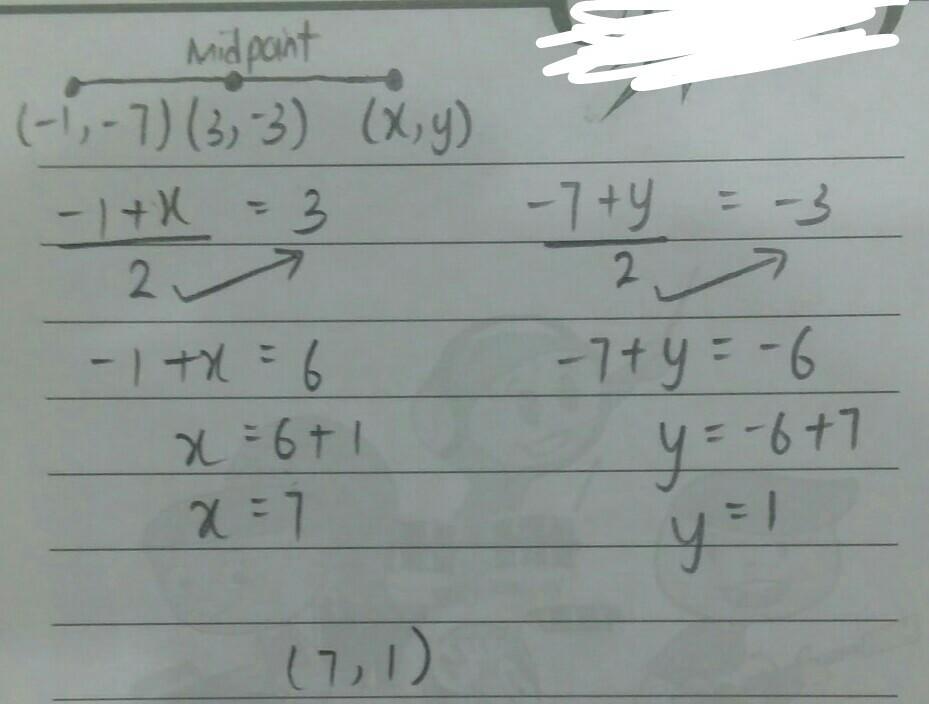 Midpoint
(-1,-7) (3,-3) (x,y)
-1+x = 3 -7+y = -3
2 2
-1+x = 6 -7+y = -6
x = 6+1 y = -6+7
x = 7 y = 1
(7,1)